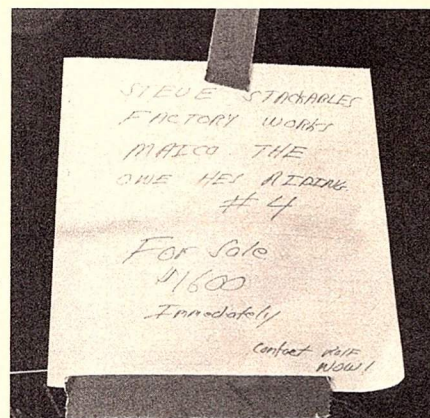 STEVE STACKABLES
FACTORY WORKS
MAICO THE
ONE HES RIDING.
# 4
For Sale
$1600
Immediately
Contact Rolf
NOW!